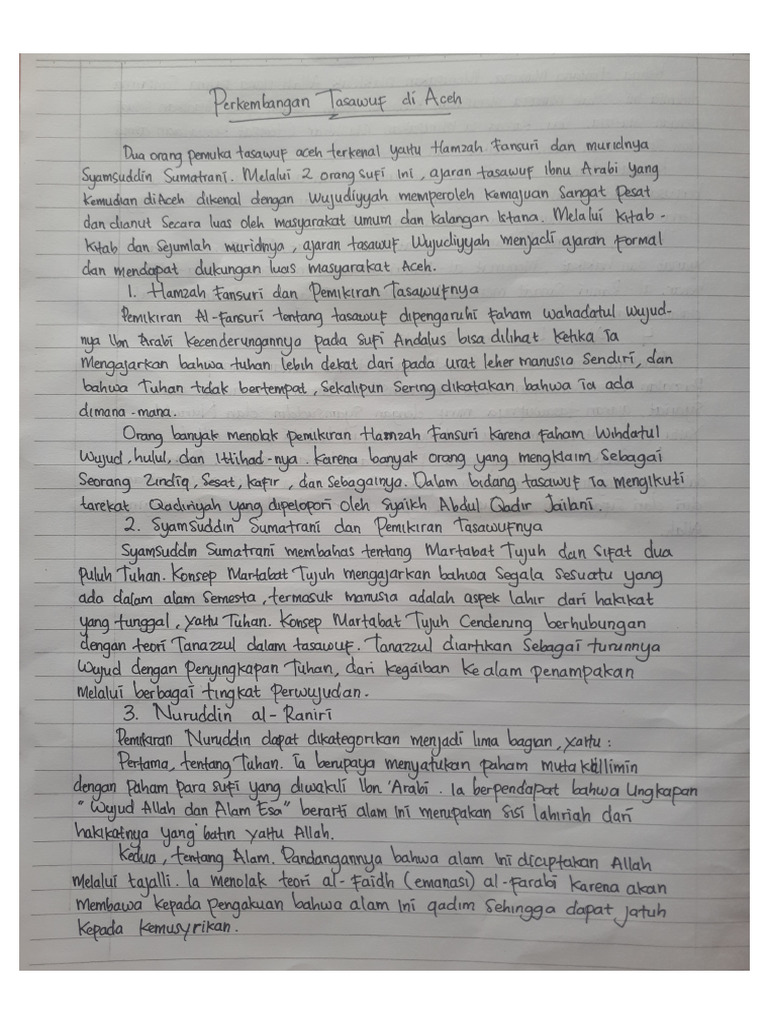 Perkembangan Tasawuf di Aceh
Dua orang pemuka tasawuf aceh terkenal yaitu Hamzah Fansuri dan muridnya
Syamsuddin Sumatrani. Melalui 2 orang sufi ini, ajaran tasawuf Ibnu Arabi yang
kemudian di Aceh dikenal dengan Wujudiyyah memperoleh kemajuan sangat pesat
dan dianut secara luas oleh masyarakat umum dan kalangan istana. Melalui kitab-
kitab dan sejumlah muridnya, ajaran tasawuf Wujudiyyah menjadi ajaran formal
dan mendapat dukungan luas masyarakat Aceh.
1. Hamzah Fansuri dan Pemikiran Tasawufnya
Pemikiran Al-Fansuri tentang tasawuf dipengaruhi faham wahadatul wujud-
nya Ibn Arabi kecenderungannya pada sufi Andalus bisa dilihat ketika ia
mengajarkan bahwa tuhan lebih dekat dari pada urat leher manusia sendiri, dan
bahwa Tuhan tidak bertempat, sekalipun sering dikatakan bahwa ia ada
dimana-mana.
Orang banyak menolak pemikiran Hamzah Fansuri karena faham Wihdatul
Wujud, hulul, dan Ittihad-nya. karena banyak orang yang mengklaim sebagai
seorang zindiq, sesat, kafir, dan sebagainya. Dalam bidang tasawuf ia mengikuti
tarekat Qadiriyah yang dipelopori oleh Syaikh Abdul Qadir Jailani.
2. Syamsuddin Sumatrani dan Pemikiran Tasawufnya
Syamsuddin Sumatrani membahas tentang Martabat Tujuh dan sifat dua
puluh Tuhan. Konsep Martabat Tujuh mengajarkan bahwa segala sesuatu yang
ada dalam alam semesta, termasuk manusia adalah aspek lahir dari hakikat
yang tunggal, yaitu Tuhan. Konsep Martabat Tujuh cenderung berhubungan
dengan teori Tanazzul dalam tasawuf. Tanazzul diartikan sebagai turunnya
wujud dengan penyingkapan Tuhan, dari kegaiban ke alam penampakan
melalui berbagai tingkat perwujudan.
3. Nuruddin al-Raniri
Pemikiran Nuruddin dapat dikategorikan menjadi lima bagian, yaitu:
Pertama, tentang Tuhan. Ia berupaya menyatukan paham mutakallimin
dengan paham para sufi yang diwakili Ibn 'Arabi. Ia berpendapat bahwa ungkapan
"Wujud Allah dan Alam Esa" berarti alam ini merupakan sisi lahiriah dari
hakikatnya yang batin yaitu Allah.
Kedua, tentang Alam. Pandangannya bahwa alam ini diciptakan Allah
melalui tajalli. Ia menolak teori al-Faidh (emanasi) al-Farabi karena akan
membawa kepada pengakuan bahwa alam ini qadim sehingga dapat jatuh
kepada kemusyrikan.